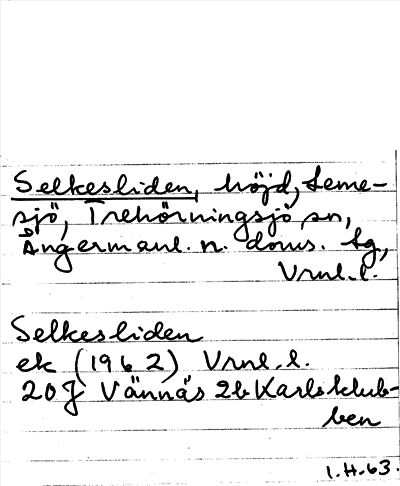 Selkesliden, höjd, Leme-
sjö, Trehörningsjö sn,
Ångermanl. n. doms. tg,
Vrnl.l.
Selkesliden
ek (1962) Vrnl.l.
20J Vännäs 2b Karlsklub-
ben
I.H.63.